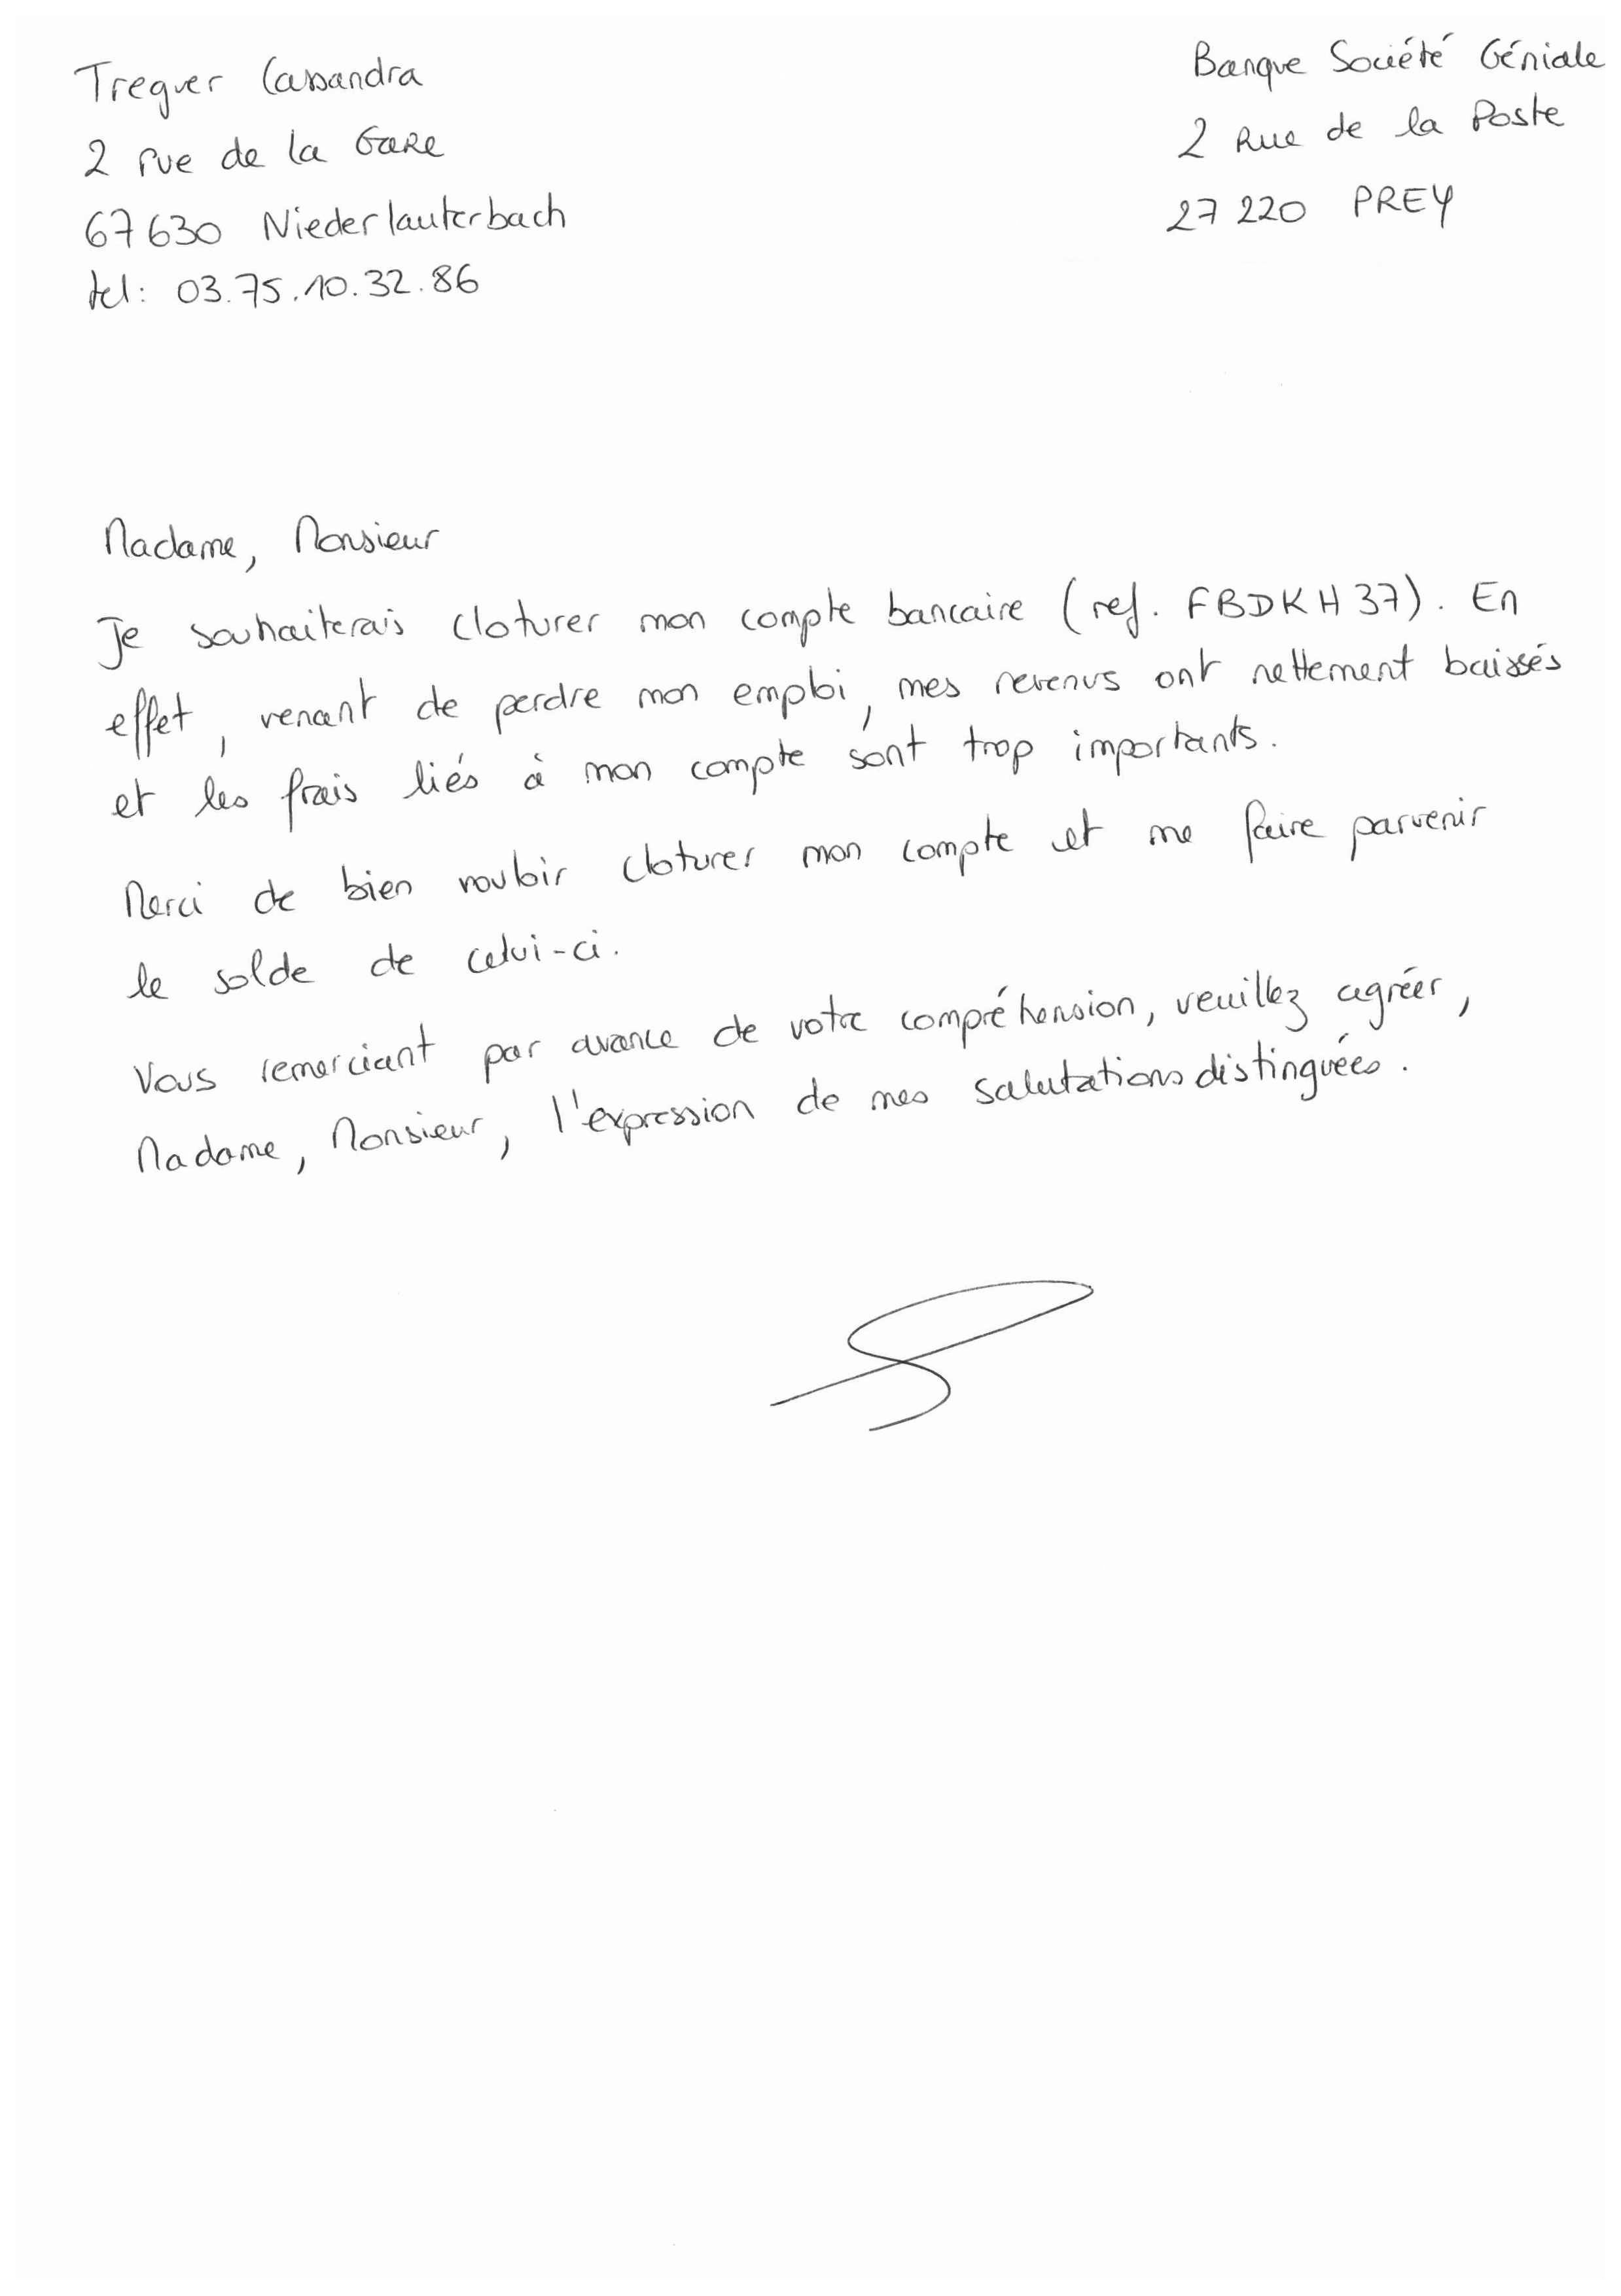 Treguer Cassandra
2 rue de la Gare
67630 Niederlauterbach
tel: 03.75.10.32.86
Banque Société Géniale
2 Rue de la Poste
27 220 PREY
Madame, Monsieur
Je souhaiterais cloturer mon compte bancaire (ref. FBDKH37). En
effet, venant de perdre mon emploi, mes revenus ont nettement baissés
et les frais liés à mon compte sont trop importants.
Merci de bien vouloir cloturer mon compte et me faire parvenir
le solde de celui-ci.
Vous remerciant par avance de votre compréhension, veuillez agréer,
Madame, Monsieur, l'expression de mes salutations distinguées.